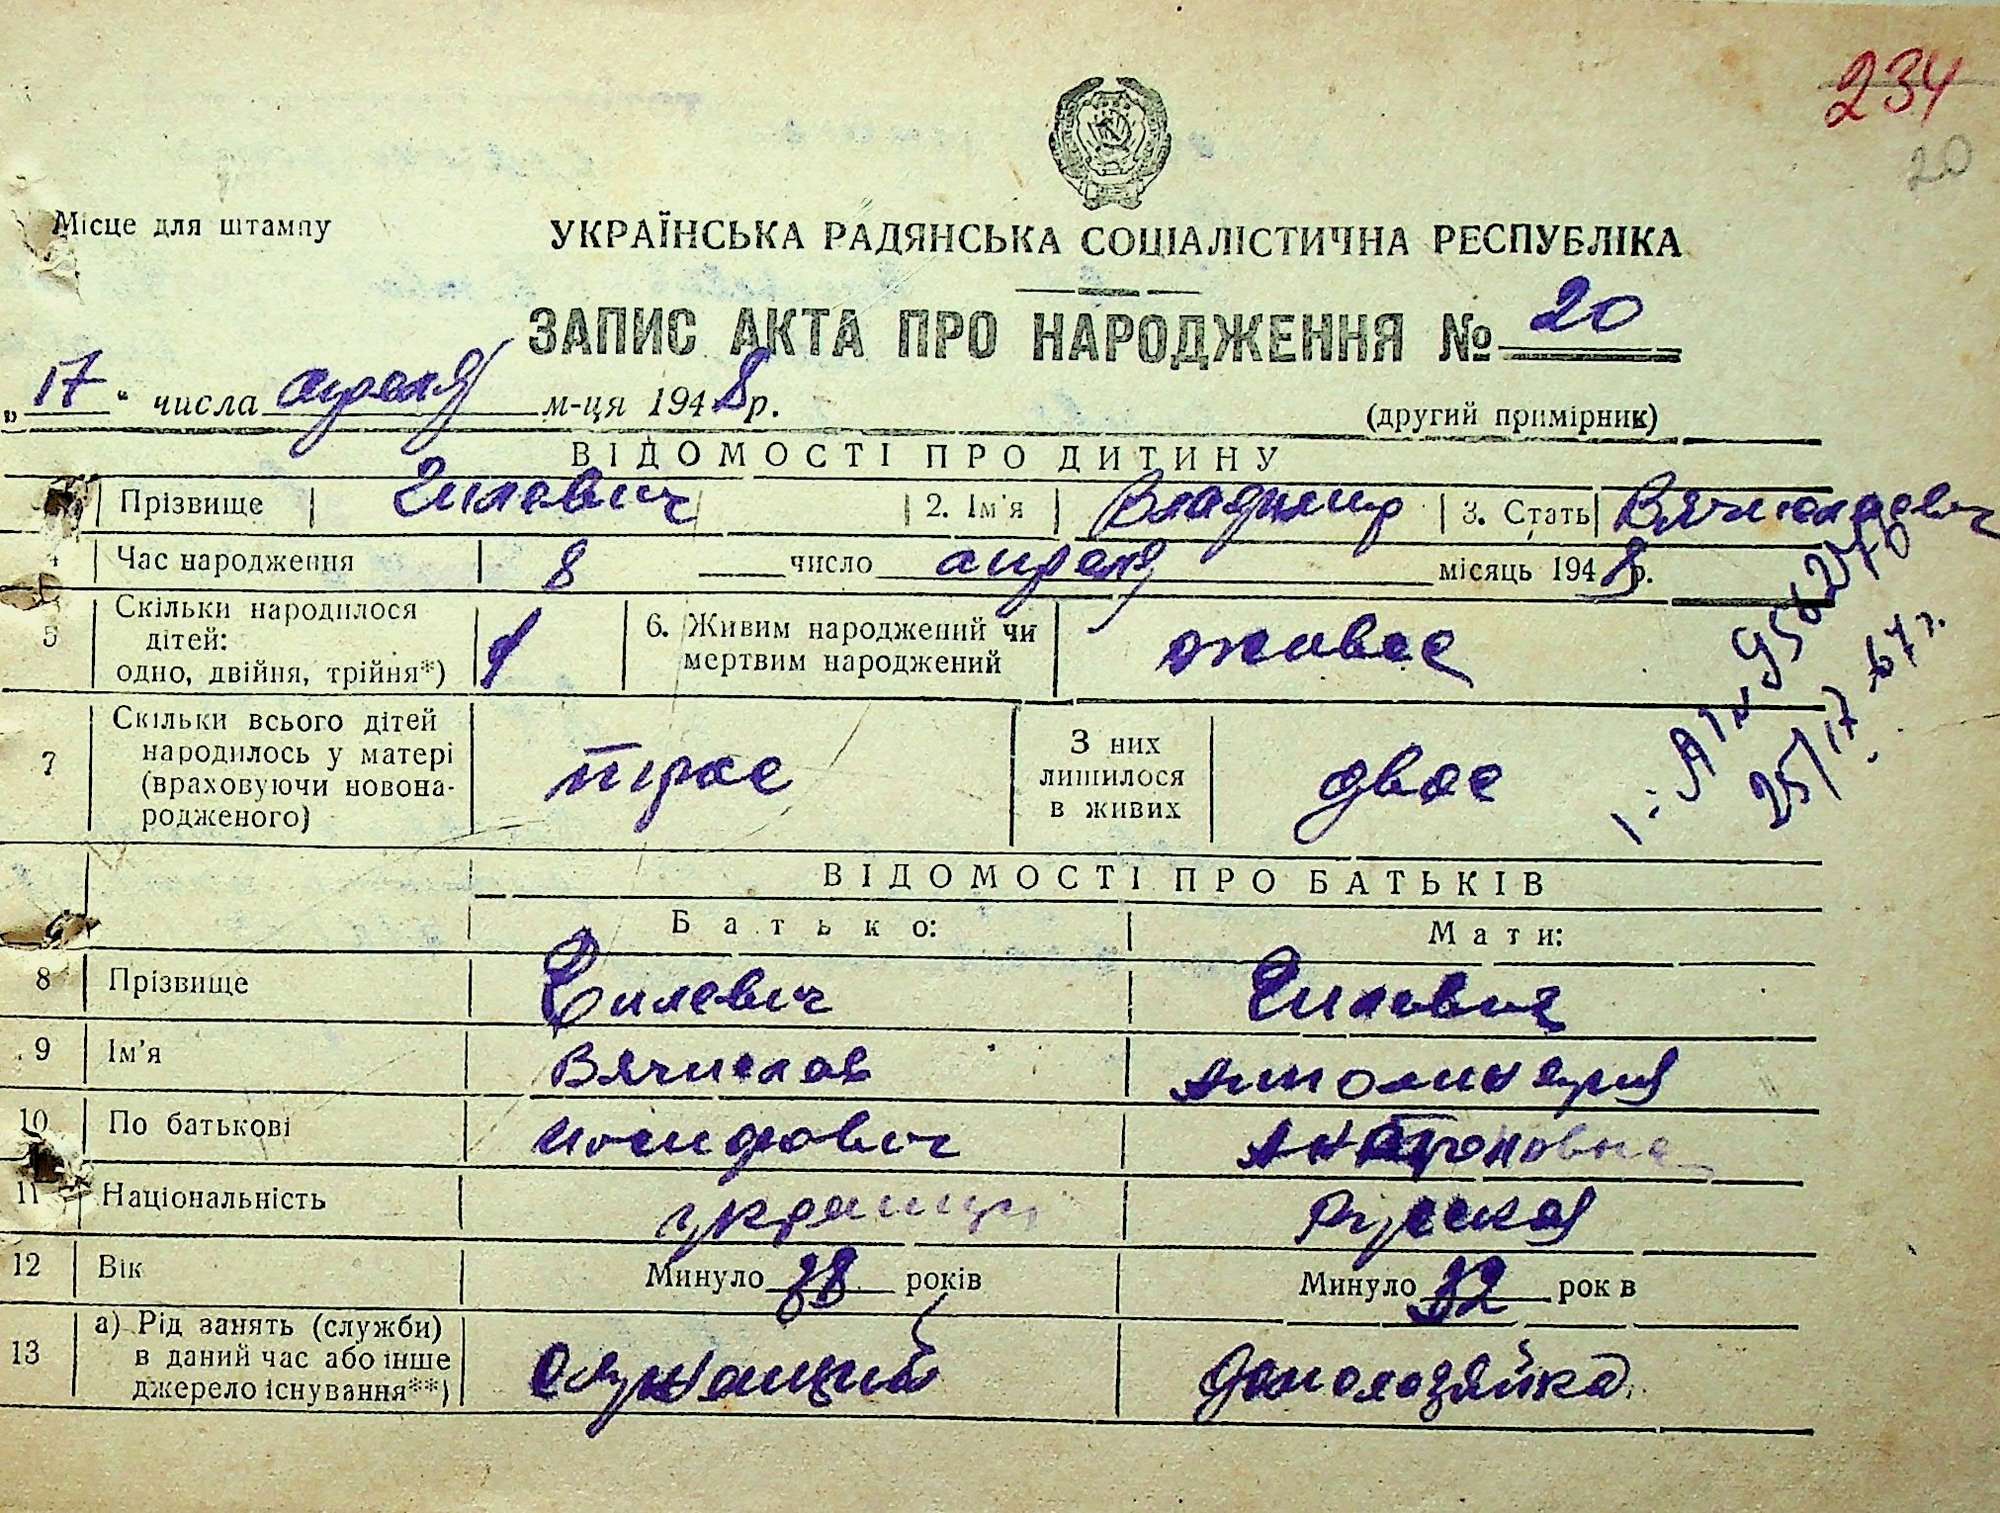 234
20
Місце для штампу
УКРАЇНСЬКА РАДЯНСЬКА СОЦІАЛІСТИЧНА РЕСПУБЛІКА
ЗАПИС АКТА ПРО НАРОДЖЕННЯ № 20
„17“ числа апреля м-ця 1948 р.
(другий примірник)
ВІДОМОСТІ ПРО ДИТИНУ
Прізвище Гилевич 2. Ім'я Владимир 3. Стать Вячиславович
4 Час народження 8 число апреля місяць 1948 р.
5 Скільки народилося дітей: одно, двійня, трійня*) 1 6. Живим народжений чи мертвим народжений живое
7 Скільки всього дітей народилось у матері (враховуючи новонародженого) трое З них лишилося в живих двое
ВІДОМОСТІ ПРО БАТЬКІВ
Батько: Мати:
8 Прізвище Гилевич Гилевич
9 Ім'я Вячислав Апполинария
10 По батькові Иосифович Антоновна
11 Національність украинец Русская
12 Вік Минуло 38 років Минуло 32 рок в
13 а) Рід занять (служби) в даний час або інше джерело існування**) Служащий Домохозяйка